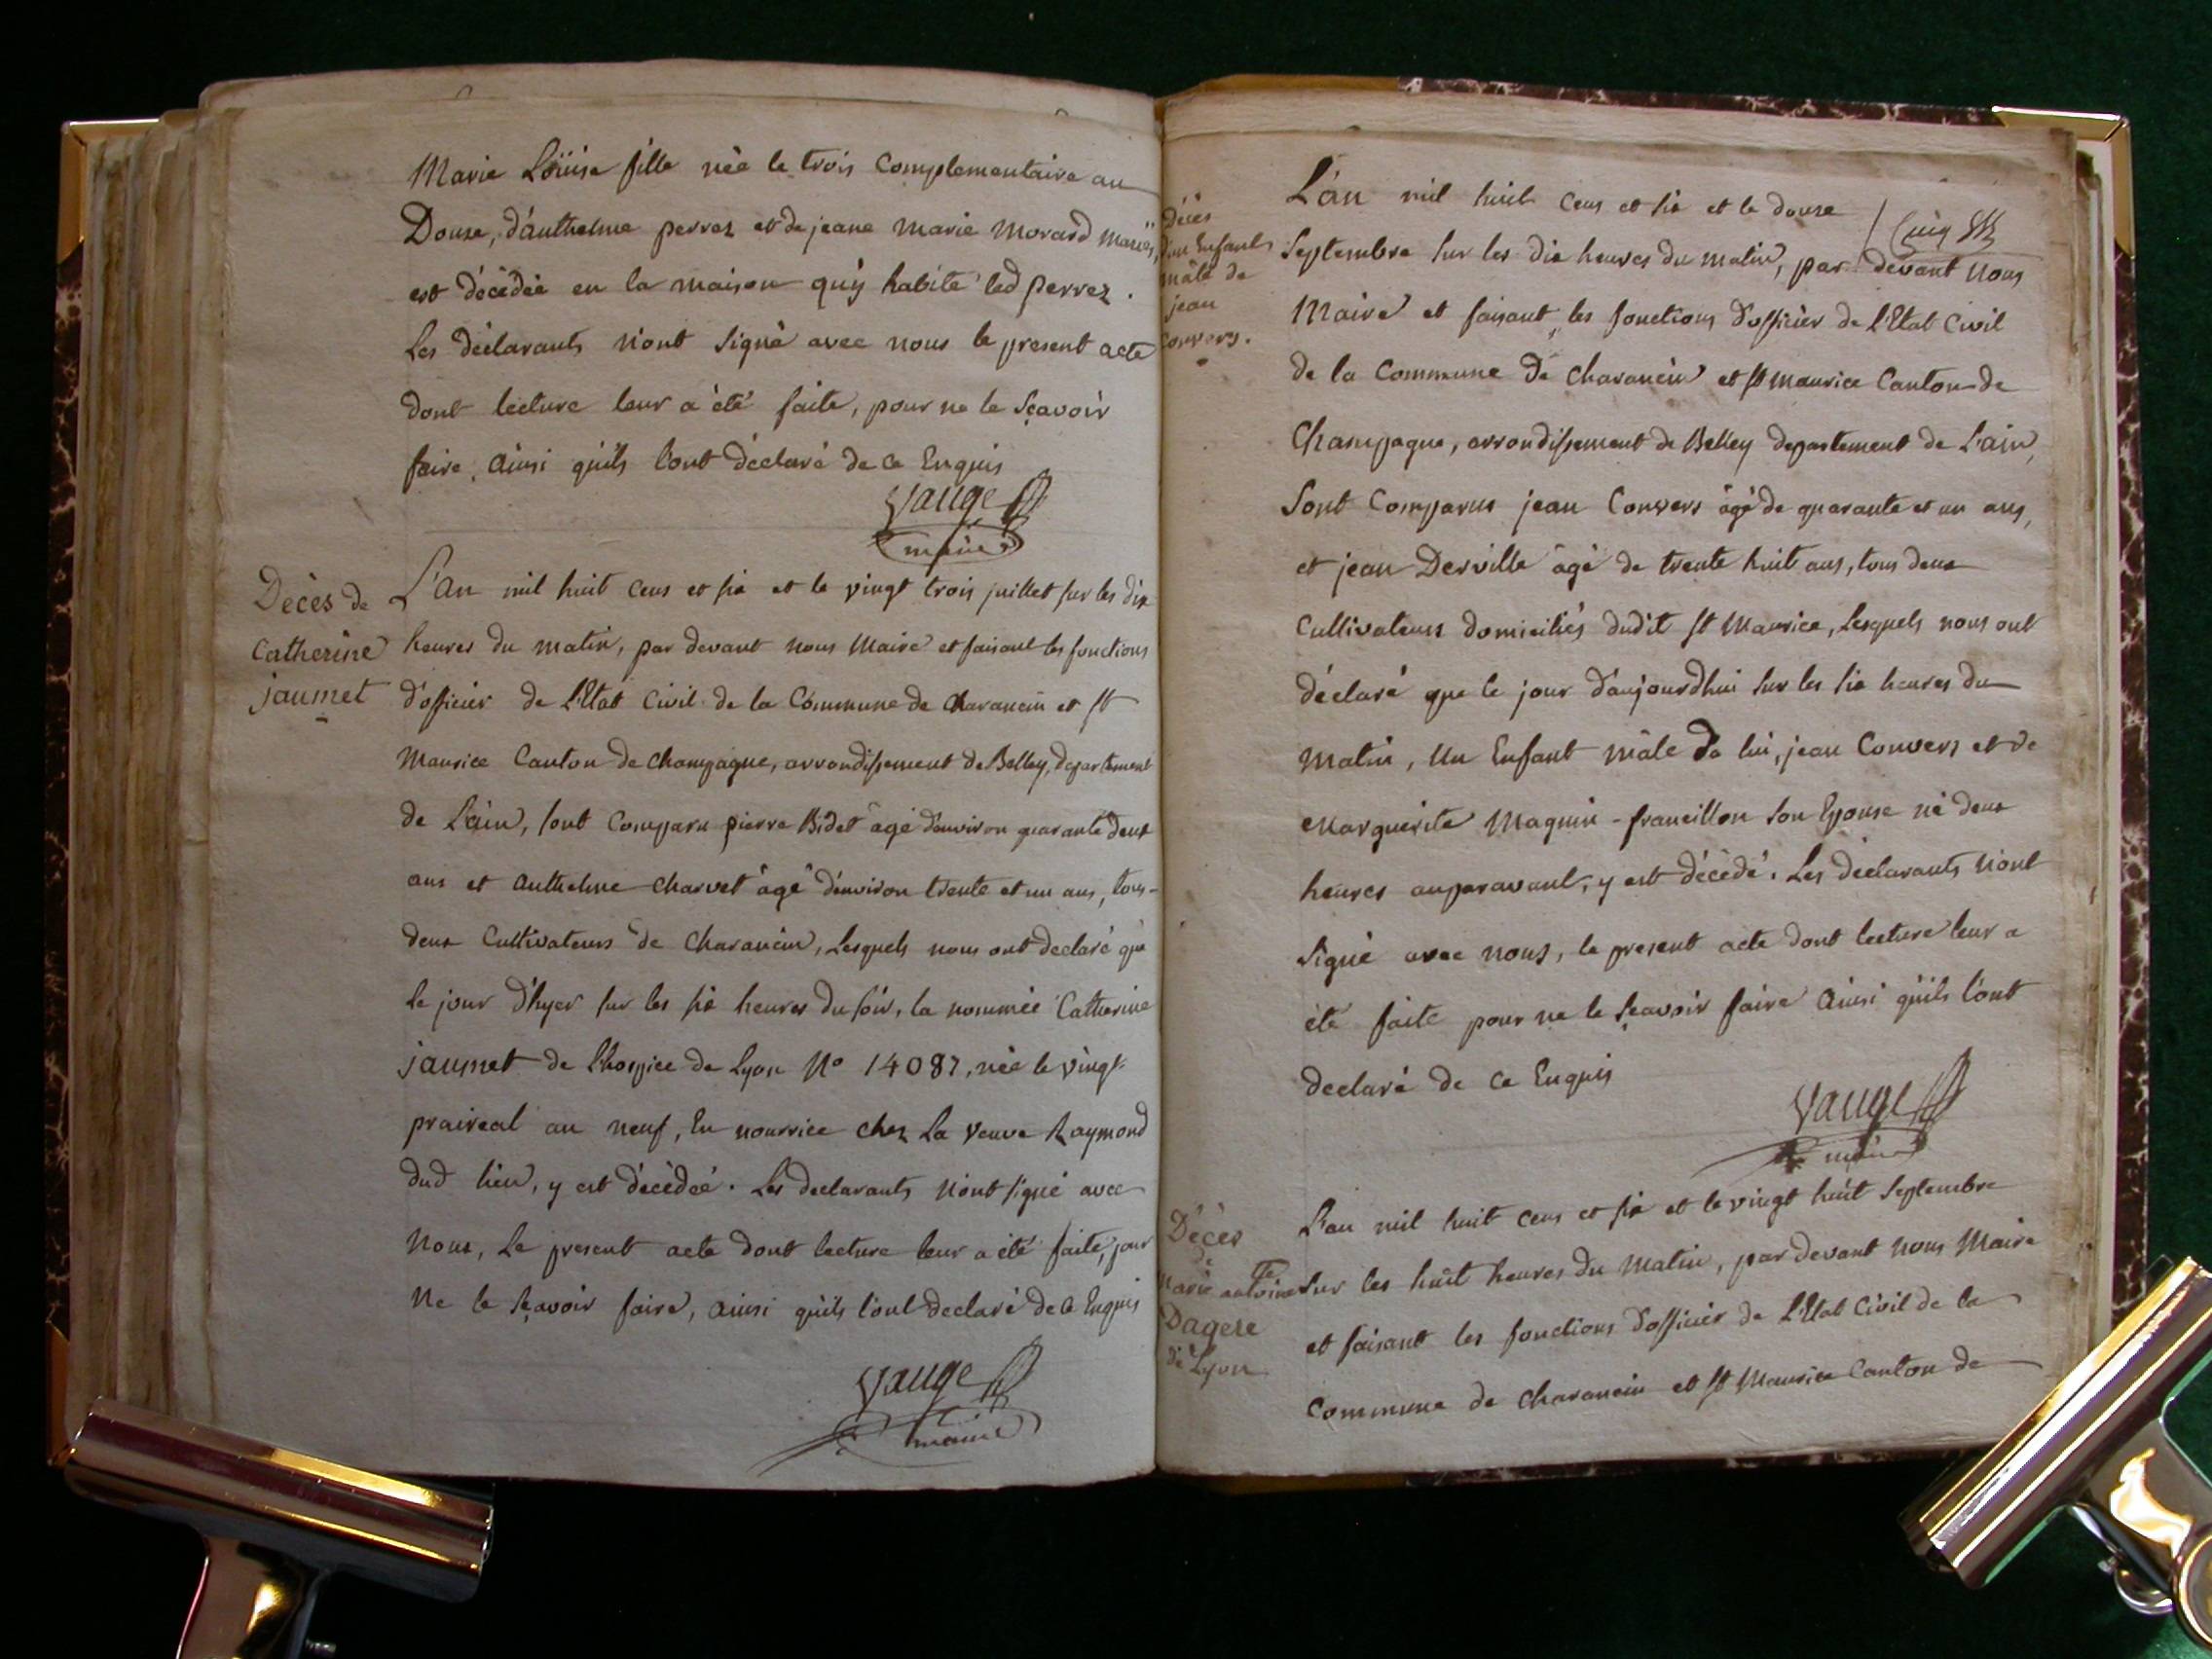 Marie Loüise fille née le trois Complementaire an
Douze, d'anthelme perrez et de jeane Marie Morard mariés,
est décédée en la maison qu'y habite led perrez.
Les déclarants n'ont signé avec nous le present acte
dont lecture leur a été faite, pour ne le sçavoir
faire, ainsi qu'ils l'ont déclaré de ce Enquis
Vauge
maire
Décès de
Catherine
jaumet
L'an mil huit cens et six et le vingt trois juillet sur les dix
heures du matin, par devant nous Maire et faisant les fonctions
d'officier de L'Etat Civil de la Commune de Charancin et St
Maurice Canton de Champagne, arrondissement de Belley, departement
de L'ain, sont Comparu pierre Bidet âgé d'environ quarante deux
ans et anthelme Charvet âgé d'environ trente et un ans, tous
deux Cultivateurs de Charancin, Lesquels nous ont declaré que
le jour d'hyer sur les six heures du soir, la nommée Catherine
jaumet de L'hospice de Lyon N° 14087, née le vingt
praireal an neuf, En nourrice chez La veuve Raymond
dud lieu, y est décédée. Les declarants n'ont signé avec
Nous, Le present acte dont lecture leur a été faite, pour
Ne le sçavoir faire, ainsi qu'ils l'ont declaré de ce Enquis
Vauge
maire
Décès
d'un Enfant
mâle de
jean
Convers.
L'an mil huit cens et six et le douze
Septembre sur les dix heures du matin, par devant nous
Maire et faisant les fonctions d'officier de L'Etat Civil
de la Commune de Charancin et St Maurice Canton de
Champagne, arrondissement de Belley departement de L'ain,
sont Comparus jean Convers âgé de quarante et un ans,
et jean Derville âgé de trente huit ans, tous deux
Cultivateurs domiciliés dudit St Maurice, Lesquels nous ont
déclaré que le jour d'aujourdhui sur les six heures du
Matin, Un Enfant mâle de lui, jean Convers et de
Marguerite Maguin-francillon son Epouse né deux
heures auparavant, y est décédé. Les déclarants n'ont
signé avec nous, le present acte dont lecture leur a
été faite pour ne le sçavoir faire ainsi qu'ils l'ont
declaré de ce Enquis
Vauge
maire
Décès
de
Marie antoinette
Dagere
de Lyon
L'an mil huit cens et six et le vingt huit Septembre
sur les huit heures du Matin, par devant nous Maire
et faisant les fonctions d'officier de L'Etat Civil de la
Commune de Charancin et St Maurice Canton de